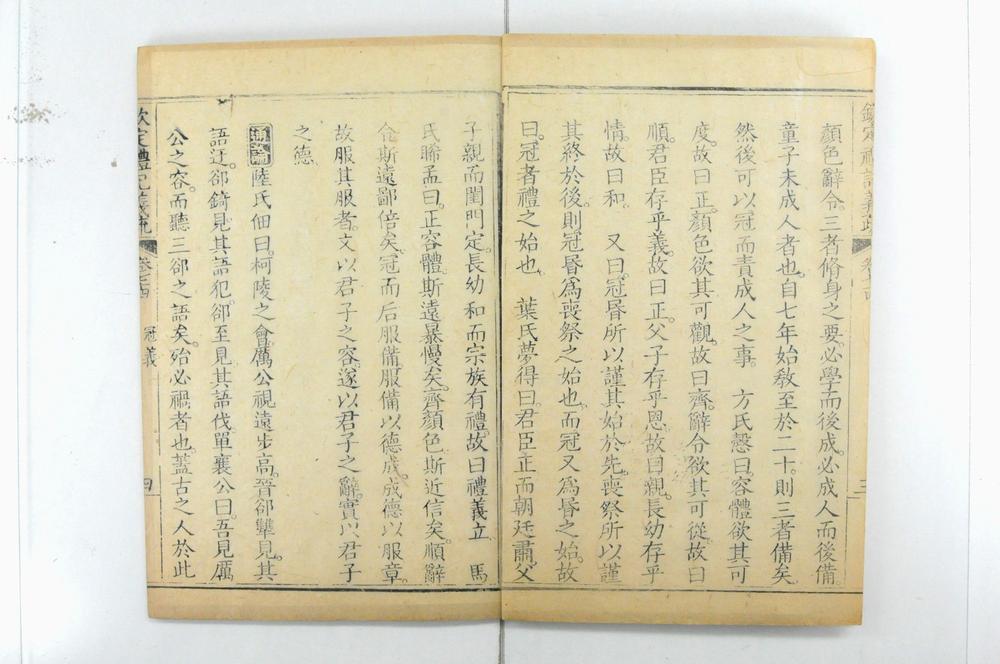 欽定禮記義疏 卷七十四 三
顏色辭令三者脩身之要必學而後成必成人而後備
童子未成人者也自七年始敎至於二十則三者備矣
然後可以冠而責成人之事 方氏慤曰容體欲其可
度故曰正顏色欲其可觀故曰齊辭令欲其可從故曰
順君臣存乎義故曰正父子存乎恩故曰親長幼存乎
情故曰和 又曰冠昬所以謹其始於先喪祭所以謹
其終於後則冠昬爲喪祭之始也而冠又爲昬之始故
曰冠者禮之始也 葉氏夢得曰君臣正而朝廷肅父
子親而閨門定長幼和而宗族有禮故曰禮義立 馬
氏睎孟曰正容體斯遠暴慢矣齊顏色斯近信矣順辭
令斯遠鄙倍矣冠而后服備服備以德成成德以服章
故服其服者文以君子之容遂以君子之辭實以君子
之德
通論陸氏佃曰柯陵之會厲公視遠步高晉郤犨見其
語迂郤錡見其語犯郤至見其語伐單襄公曰吾見厲
公之容而聽三郤之語矣殆必禍者也蓋古之人於此
欽定禮記義疏 卷七十四 冠義 四